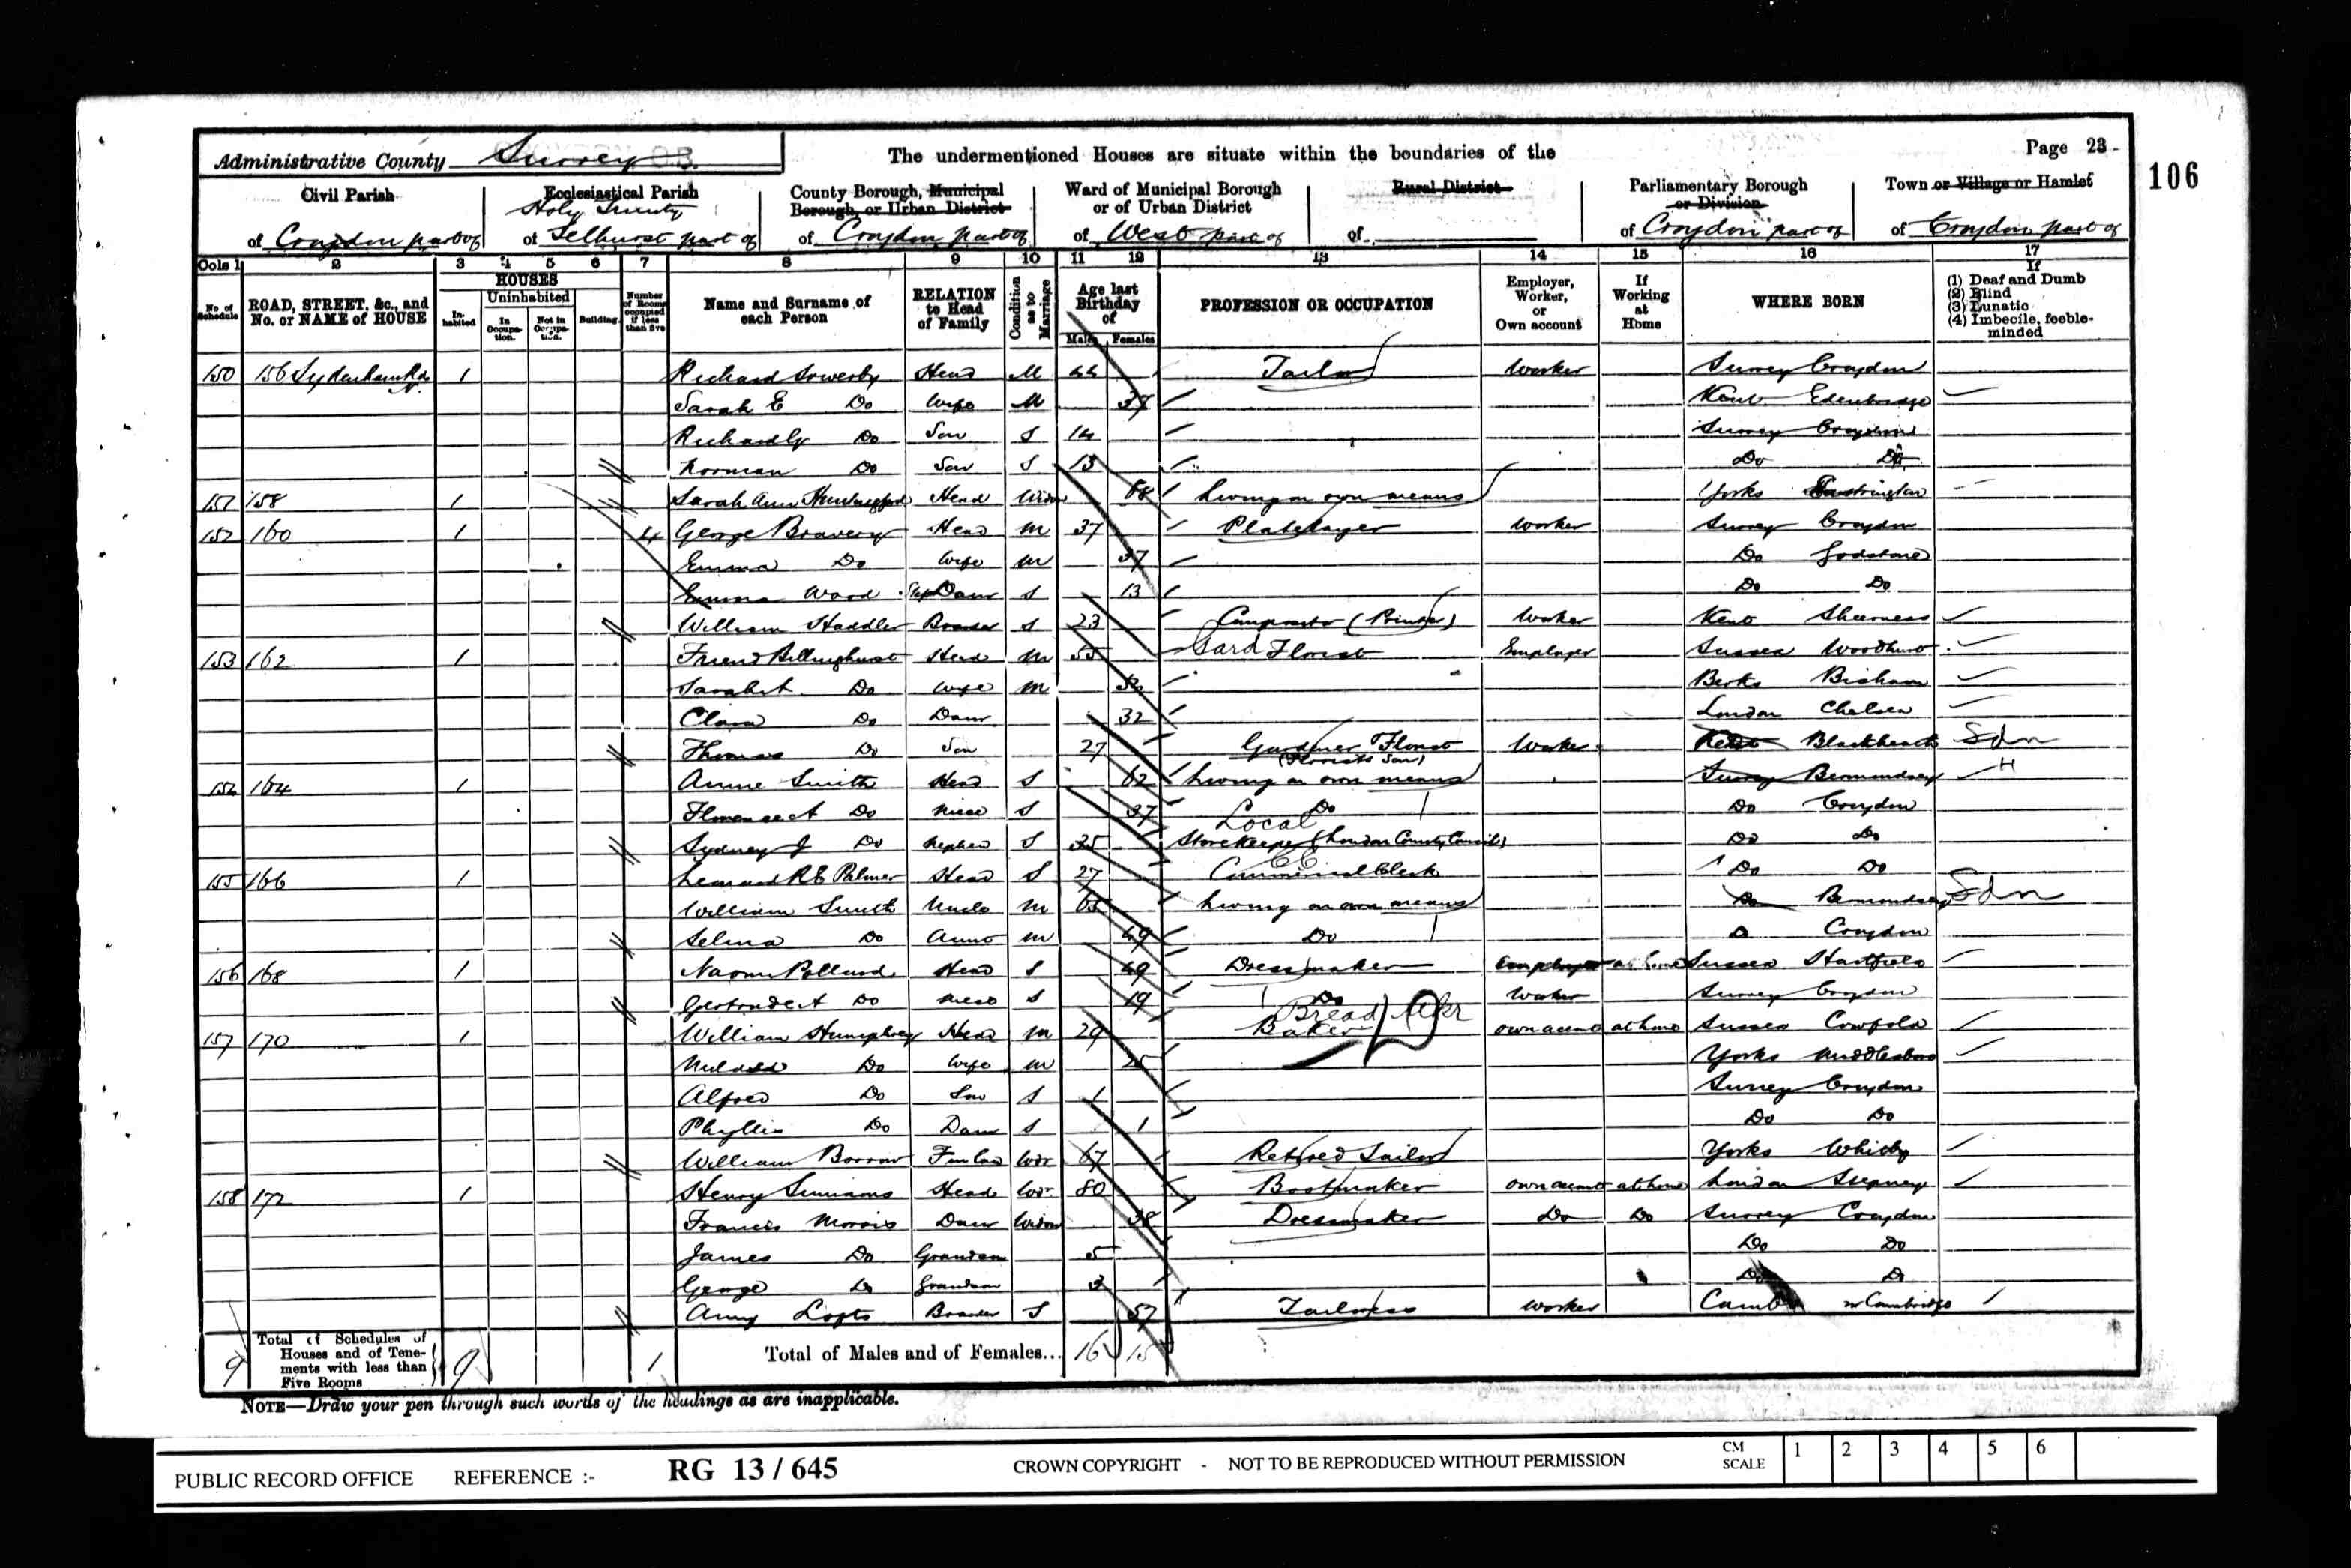 Administrative County Surrey
The undermentioned Houses are situate within the boundaries of the
Page 23
106
Civil Parish of Croydon part of
Ecclesiastical Parish of Holy Trinity Selhurst part of
County Borough, Municipal Borough, or Urban District of Croydon part of
Ward of Municipal Borough or of Urban District of West part of
Rural District of
Parliamentary Borough or Division of Croydon part of
Town or Village or Hamlet of Croydon part of
Cols 1 2 3 4 5 6 7 8 9 10 11 12 13 14 15 16 17
No. of Schedule
ROAD, STREET, &c., and No. or NAME of HOUSE
HOUSES
Inhabited
Uninhabited
In Occupation.
Not in Occupation.
Building.
Number of Rooms occupied if less than five
Name and Surname of each Person
RELATION to Head of Family
Condition as to Marriage
Age last Birthday of
Males Females
PROFESSION OR OCCUPATION
Employer, Worker, or Own account
If Working at Home
WHERE BORN
If
(1) Deaf and Dumb
(2) Blind
(3) Lunatic
(4) Imbecile, feeble-minded
150 156 Sydenham Rd N. 1 Richard Sowerby Head M 44 Tailor Worker Surrey Croydon
Sarah E Do Wife M 37 Kent Edenbridge
Richard G Do Son S 14 Surrey Croydon
Norman Do Son S 13 Do Do
151 158 1 Sarah Ann Head Widow 68 Living on own means Yorks
152 160 1 4 George Bravery Head M 37 Platelayer Worker Surrey Croydon
Emma Do Wife M 37 Do Godstone
Emma Wood Step Daur S 13 Do Do
William Haddler Boarder S 23 Compositor (Printer) Worker Kent Sheerness
153 162 1 Friend Billinghurst Head M 55 Gard Florist Employer Sussex
Sarah A Do Wife M Berks Bisham
Clara Do Daur 32 London Chelsea
Thomas Do Son 27 Gardener Florist (Florists Son) Worker Kent Blackheath Sdn
154 164 1 Annie Smith Head S 62 Living on own means Surrey Bermondsey H
Florence A Do Niece S 37 Do Do Croydon
Local
Sydney J Do Nephew S 35 Storekeeper (London County Council) Do Do
155 166 1 Leonard R E Palmer Head S 27 Commercial Clerk Do Do
William Smith Uncle M 65 Living on own means Do Bermondsey Sdn
Selina Do Aunt M 49 Do Do Croydon
156 168 1 Naomi Pollard Head S 49 Dressmaker Employer at home Sussex Hartfield
Gertrude A Do Niece S 19 Do Worker Surrey Croydon
Bread Mkr
157 170 1 William Humphrey Head M 29 Baker own account at home Sussex Cowfold
Mildred Do Wife M 25 Yorks Middlesboro
Alfred Do Son S 1 Surrey Croydon
Phyllis Do Daur S 1 Do Do
William Borrow F in law Wdr 67 Retired Sailor Yorks Whitby
158 172 1 Henry Simmons Head Wdr 80 Bootmaker own account at home London Stepney
Francis Morris Daur Widow 38 Dressmaker Do Do Surrey Croydon
James Do Grandson 5 Do Do
George Do Grandson 3 Do Do
Amy Lofts Boarder S 57 Tailoress Worker Camb nr Cambridge
9 Total of Schedules of Houses and of Tenements with less than Five Rooms 9 1 Total of Males and of Females... 16 15
NOTE—Draw your pen through such words of the headings as are inapplicable.
PUBLIC RECORD OFFICE REFERENCE :- RG 13 / 645 CROWN COPYRIGHT - NOT TO BE REPRODUCED WITHOUT PERMISSION CM SCALE 1 2 3 4 5 6